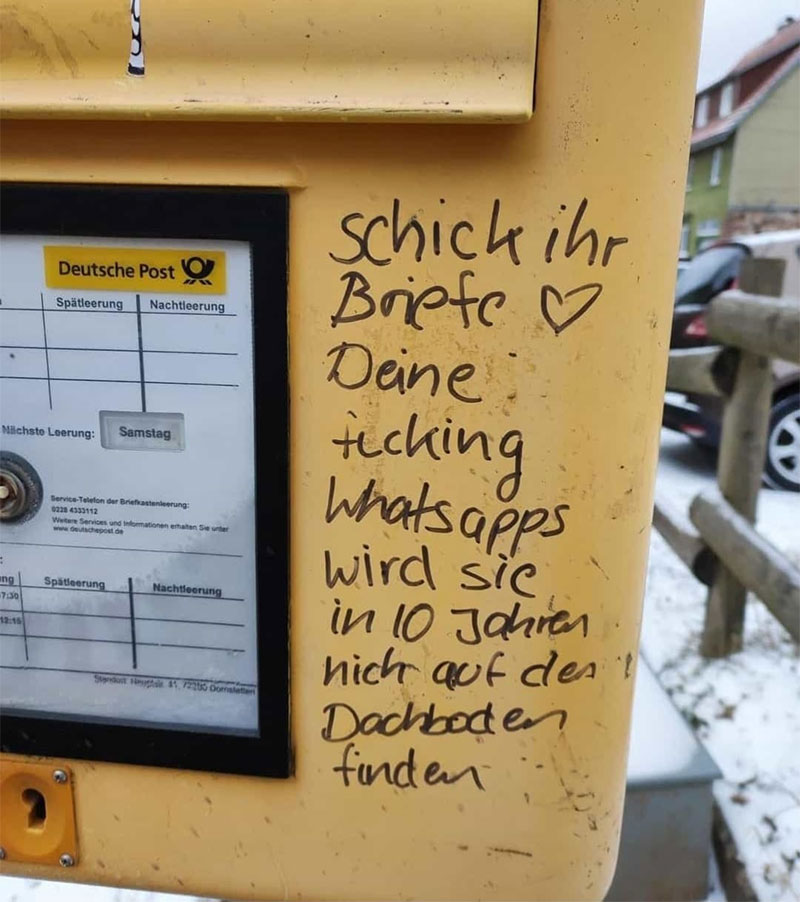 Deutsche Post
Spätleerung Nachtleerung
Nächste Leerung: Samstag
Service-Telefon der Briefkastenleerung:
0228 4333112
Weitere Services und Informationen erhalten Sie unter
www.deutschepost.de
Spätleerung Nachtleerung
7:30
12:15
72280 Dornstetten
schick ihr
Briefe ♡
Deine
ficking
Whatsapps
wird sie
in 10 Jahren
nich auf den
Dachboden
finden